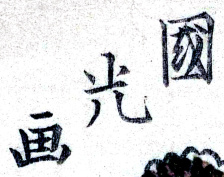 國光画